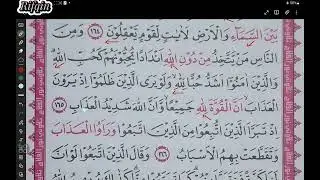 Rifqin
بَيْنَ السَّمَآءِ وَالْاَرْضِ لَاٰيٰتٍ لِّقَوْمٍ يَّعْقِلُوْنَ ﴿١٦٤﴾ وَمِنَ
النَّاسِ مَنْ يَّتَّخِذُ مِنْ دُوْنِ اللّٰهِ اَنْدَادًا يُّحِبُّوْنَهُمْ كَحُبِّ اللّٰهِ
وَالَّذِيْنَ اٰمَنُوْٓا اَشَدُّ حُبًّا لِّلّٰهِ وَلَوْ يَرَى الَّذِيْنَ ظَلَمُوْٓا اِذْ يَرَوْنَ
الْعَذَابَ اَنَّ الْقُوَّةَ لِلّٰهِ جَمِيْعًا وَّاَنَّ اللّٰهَ شَدِيْدُ الْعَذَابِ ﴿١٦٥﴾
اِذْ تَبَرَّاَ الَّذِيْنَ اتُّبِعُوْا مِنَ الَّذِيْنَ اتَّبَعُوْا وَرَاَوُا الْعَذَابَ
وَتَقَطَّعَتْ بِهِمُ الْاَسْبَابُ ﴿١٦٦﴾ وَقَالَ الَّذِيْنَ اتَّبَعُوْا لَوْ اَنَّ